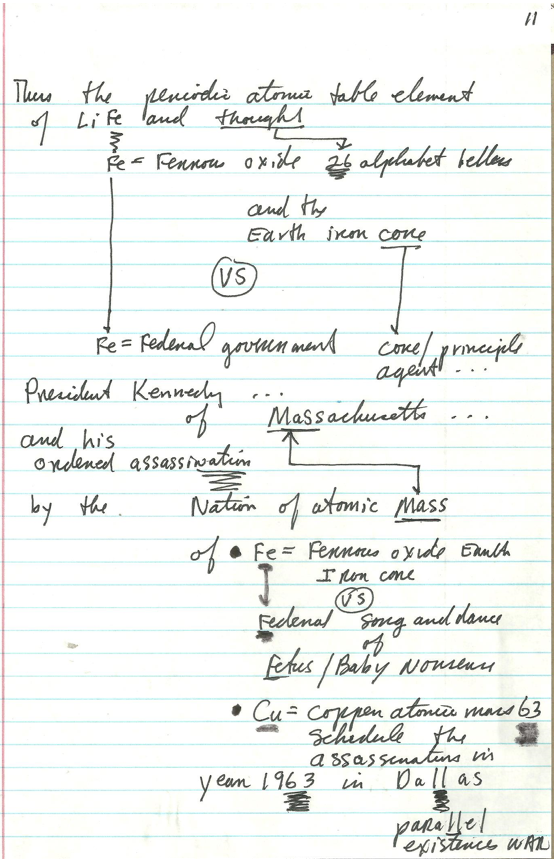 11
Thus the periodic atomic table element
of LiFe and thought
Fe = Ferrous oxide 26 alphabet letters
and the
Earth iron core
VS
Fe = Federal government core/principle
agent ...
President Kennedy ...
of Massachusetts ...
and his
ordered assassination
by the Nation of atomic Mass
of • Fe = Ferrous oxide Earth
Iron core
VS
Federal Song and dance
of
Fetus / Baby Nonsense
• Cu = copper atomic mass 63
schedule the
assassination in
year 1963 in Dallas
parallel
existences WAR